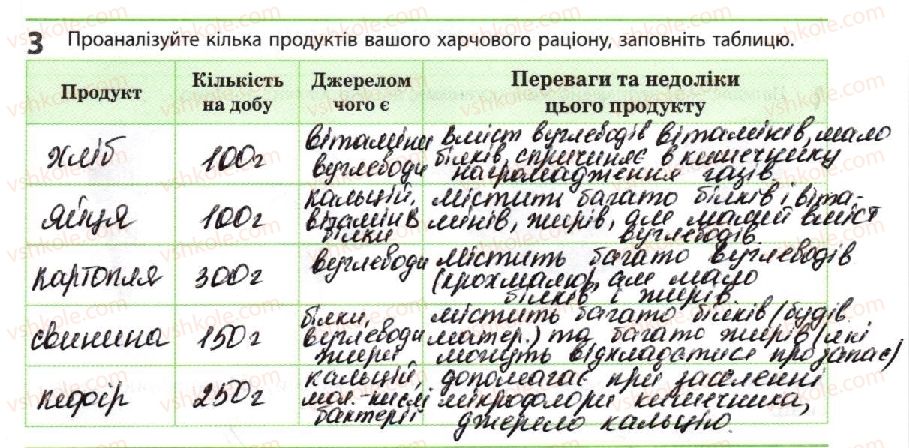 3 Проаналізуйте кілька продуктів вашого харчового раціону, заповніть таблицю.
Продукт
Кількість
на добу
Джерелом
чого є
Переваги та недоліки
цього продукту
хліб
100г
вітаміни
вуглеводи
вміст вуглеводів вітамінів, мало
білків, спричиняє в кишечнику
нагромадження газів.
яйця
100г
кальцій,
вітамінів
білки
містить багато білків і віта-
мінів, жирів, але малий вміст
вуглеводів.
картопля
300г
вуглеводи
містить багато вуглеводів
(крохмалю), але мало
білків і жирів.
свинина
150г
білки,
вуглеводи
жири
містить багато білків (будів.
матер.) та багато жирів (які
можуть відкладатися про запас)
кефір
250г
кальцій,
мол.-кислі
бактерії
допомагає при заселенні
мікрофлори кишечника,
джерело кальцію.
vshkole.com